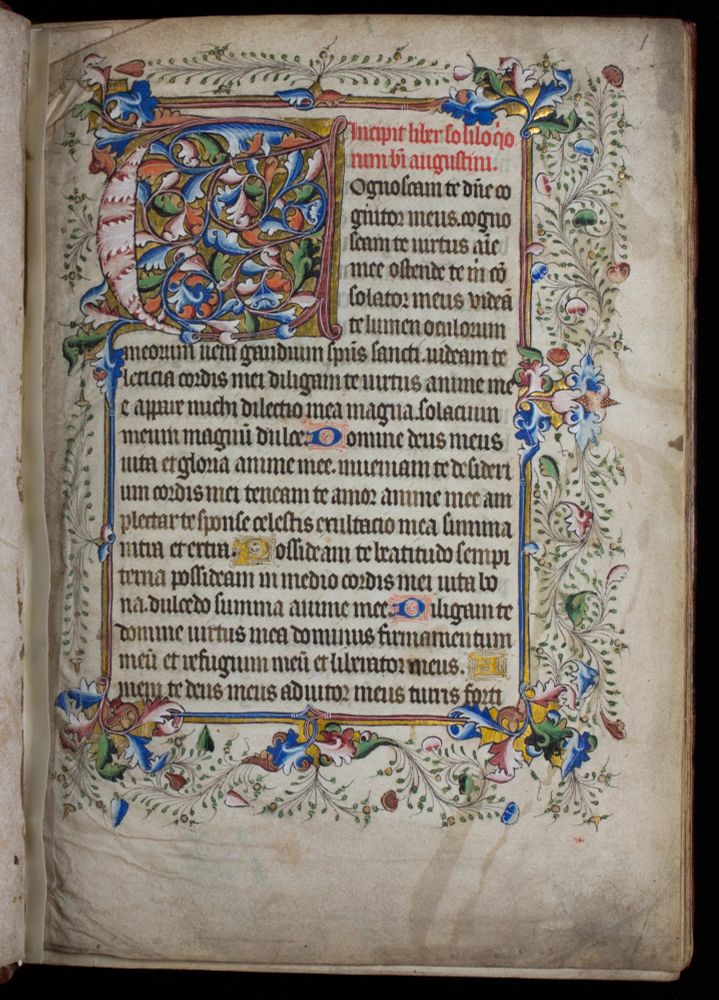 1
Incipit liber soliloq̃o
rum bĩ augustini.
Cognoscam te dñe co
gnitor meus. cogno
scam te uirtus aĩe
mee ostende te m̃ cõ
solator meus uideã
te lumen oculorum
meorum ueni gaudium spũs sancti. uideam te
leticia cordis mei diligam te uirtus anime me
e appare michi dilectio mea magna. solacium
meum magnũ dulce. Domine deus meus
uita et gloria anime mee. inueniam te desideri
um cordis mei teneam te amor anime mee am
plectar te sponse celestis exultacio mea summa
intra et extra. Possideam te beatitudo sempi
terna possideam in medio cordis mei uita bo
na. dulcedo summa anime mee. Diligam te
domine uirtus mea dominus firmamentum
meũ et refugium meũ et liberator meus. A
mem te deus meus adiutor meus turris forti